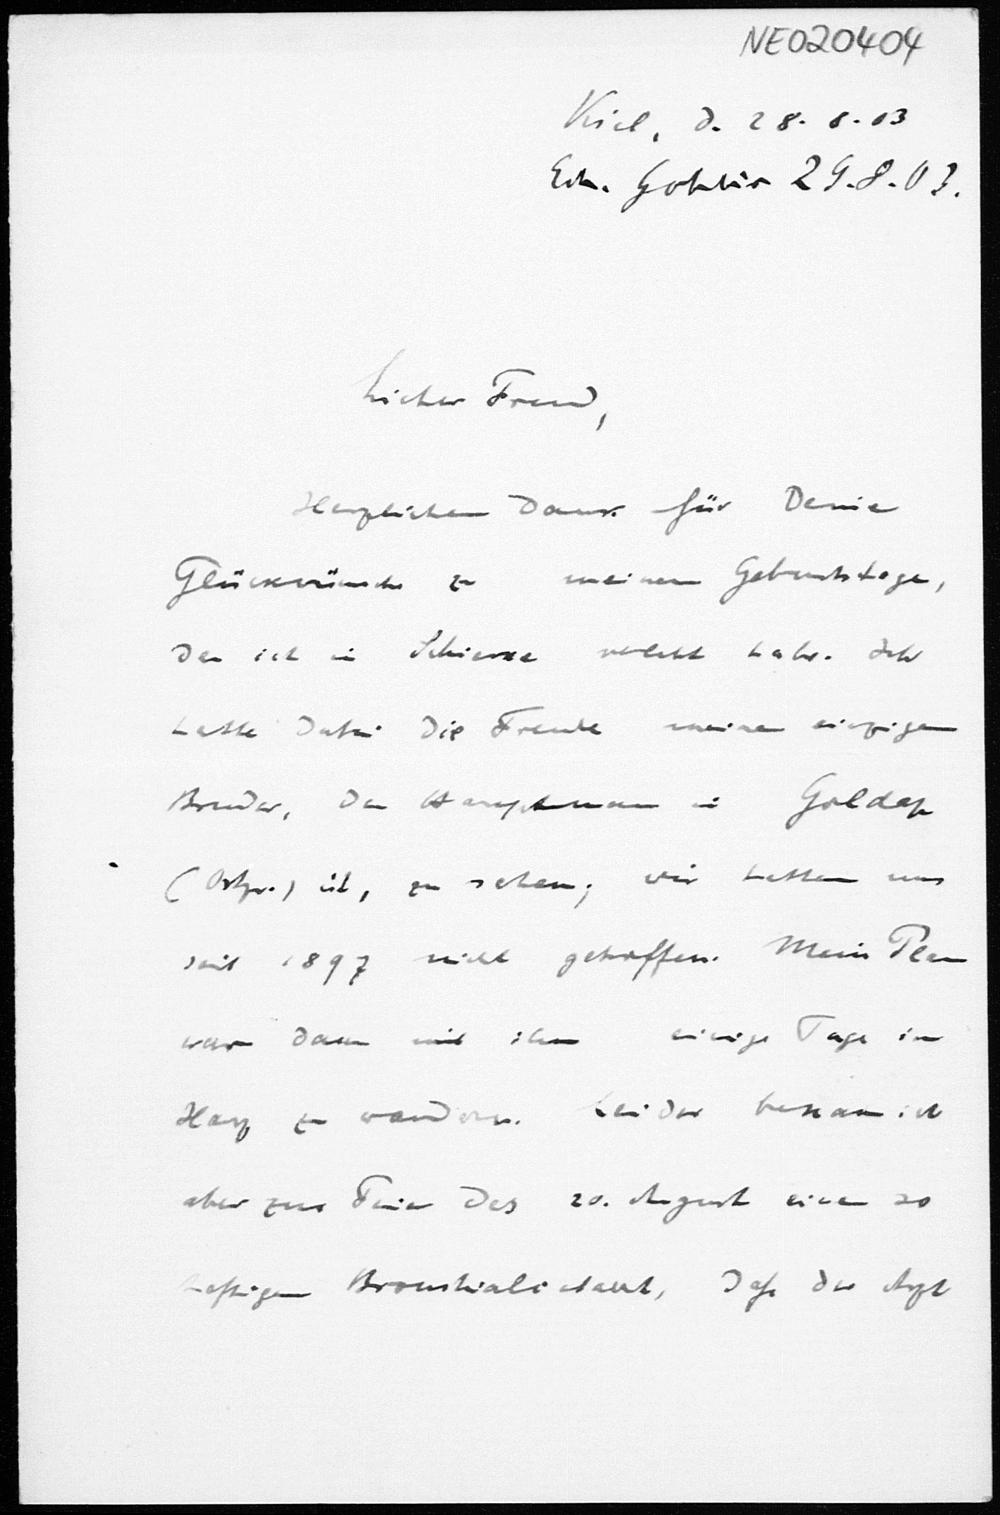 NE020404
Kiel, d. 28. 8. 03
29.8.03.
Lieber Freund,
Herzlichen Dank für Deine
Glückwünsche zu meinem Geburtstage,
den ich in Schierke verlebt habe. Ich
hatte dabei die Freude meinen einzigen
Bruder, der Hauptmann in Goldap
(Ostpr.) ist, zu sehen; wir hatten uns
seit 1897 nicht getroffen. Mein Plan
war dann mit ihm einige Tage im
Harz zu wandern. Leider bekam ich
aber zur Feier des 20. August einen so
heftigen Bronchialkatarrh, daß der Arzt